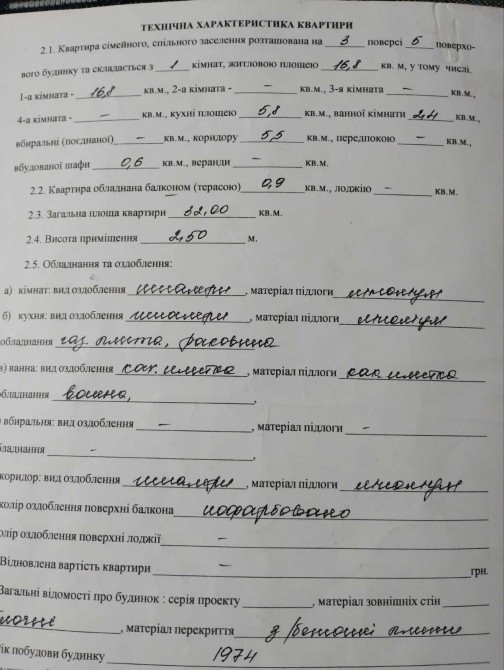 ТЕХНІЧНА ХАРАКТЕРИСТИКА КВАРТИРИ
2.1. Квартира сімейного, спільного заселення розташована на 3 поверсі 5 поверхо-
вого будинку та складається з 1 кімнат, житловою площею 16,8 кв. м, у тому числі.
1-а кімната - 16,8 кв.м., 2-а кімната - – кв.м., 3-я кімната – кв.м.,
4-а кімната - – кв.м., кухні площею 5,8 кв.м., ванної кімнати 2,4 кв.м.,
вбиральні (поєднаної) – кв.м., коридору 5,5 кв.м., передпокою – кв.м.,
вбудованої шафи 0,6 кв.м., веранди – кв.м.
2.2. Квартира обладнана балконом (терасою) 0,9 кв.м., лоджію – кв.м.
2.3. Загальна площа квартири 32,00 кв.м.
2.4. Висота приміщення 2,50 м.
2.5. Обладнання та оздоблення:
а) кімнат: вид оздоблення шпалери, матеріал підлоги лінолеум
б) кухня: вид оздоблення шпалери, матеріал підлоги лінолеум
обладнання газ. плита, раковина
в) ванна: вид оздоблення как. плитка, матеріал підлоги как. плитка
обладнання ванна,
вбиральня: вид оздоблення –, матеріал підлоги –
бладнання –,
коридор: вид оздоблення шпалери, матеріал підлоги лінолеум
колір оздоблення поверхні балкона пофарбовано
олір оздоблення поверхні лоджії –
Відновлена вартість квартири – грн.
Загальні відомості про будинок : серія проекту , матеріал зовнішніх стін
, матеріал перекриття з/бетонні плити
ік побудови будинку 1974